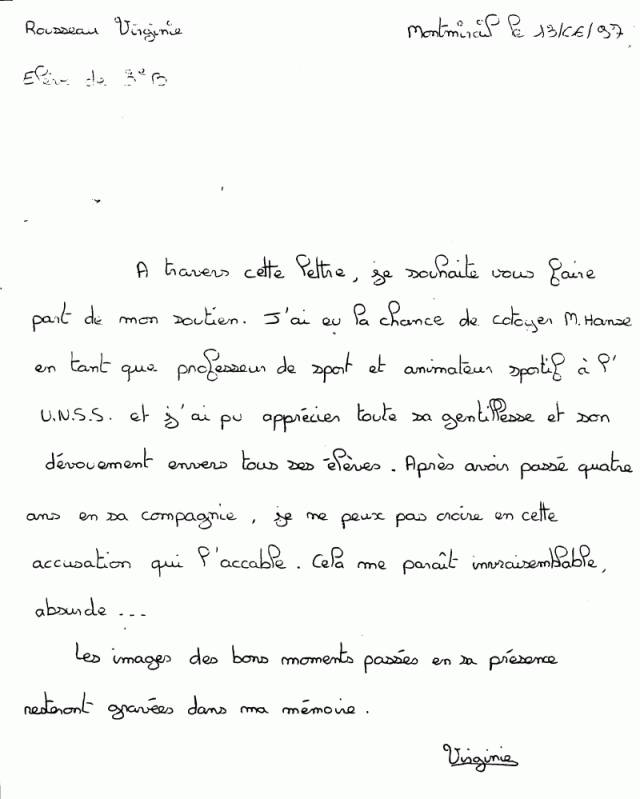 Rousseau Virginie
Montmirail le 13/06/97
Elève de 3e B
A travers cette lettre, je souhaite vous faire
part de mon soutien. J'ai eu la chance de cotoyer M. Hanse
en tant que professeur de sport et animateur sportif à l'
U.N.S.S. et j'ai pu apprécier toute sa gentillesse et son
dévouement envers tous ses élèves. Après avoir passé quatre
ans en sa compagnie, je ne peux pas croire en cette
accusation qui l'accable. Cela me paraît invraisemblable,
absurde ...
Les images des bons moments passées en sa présence
resteront gravées dans ma mémoire.
Virginie